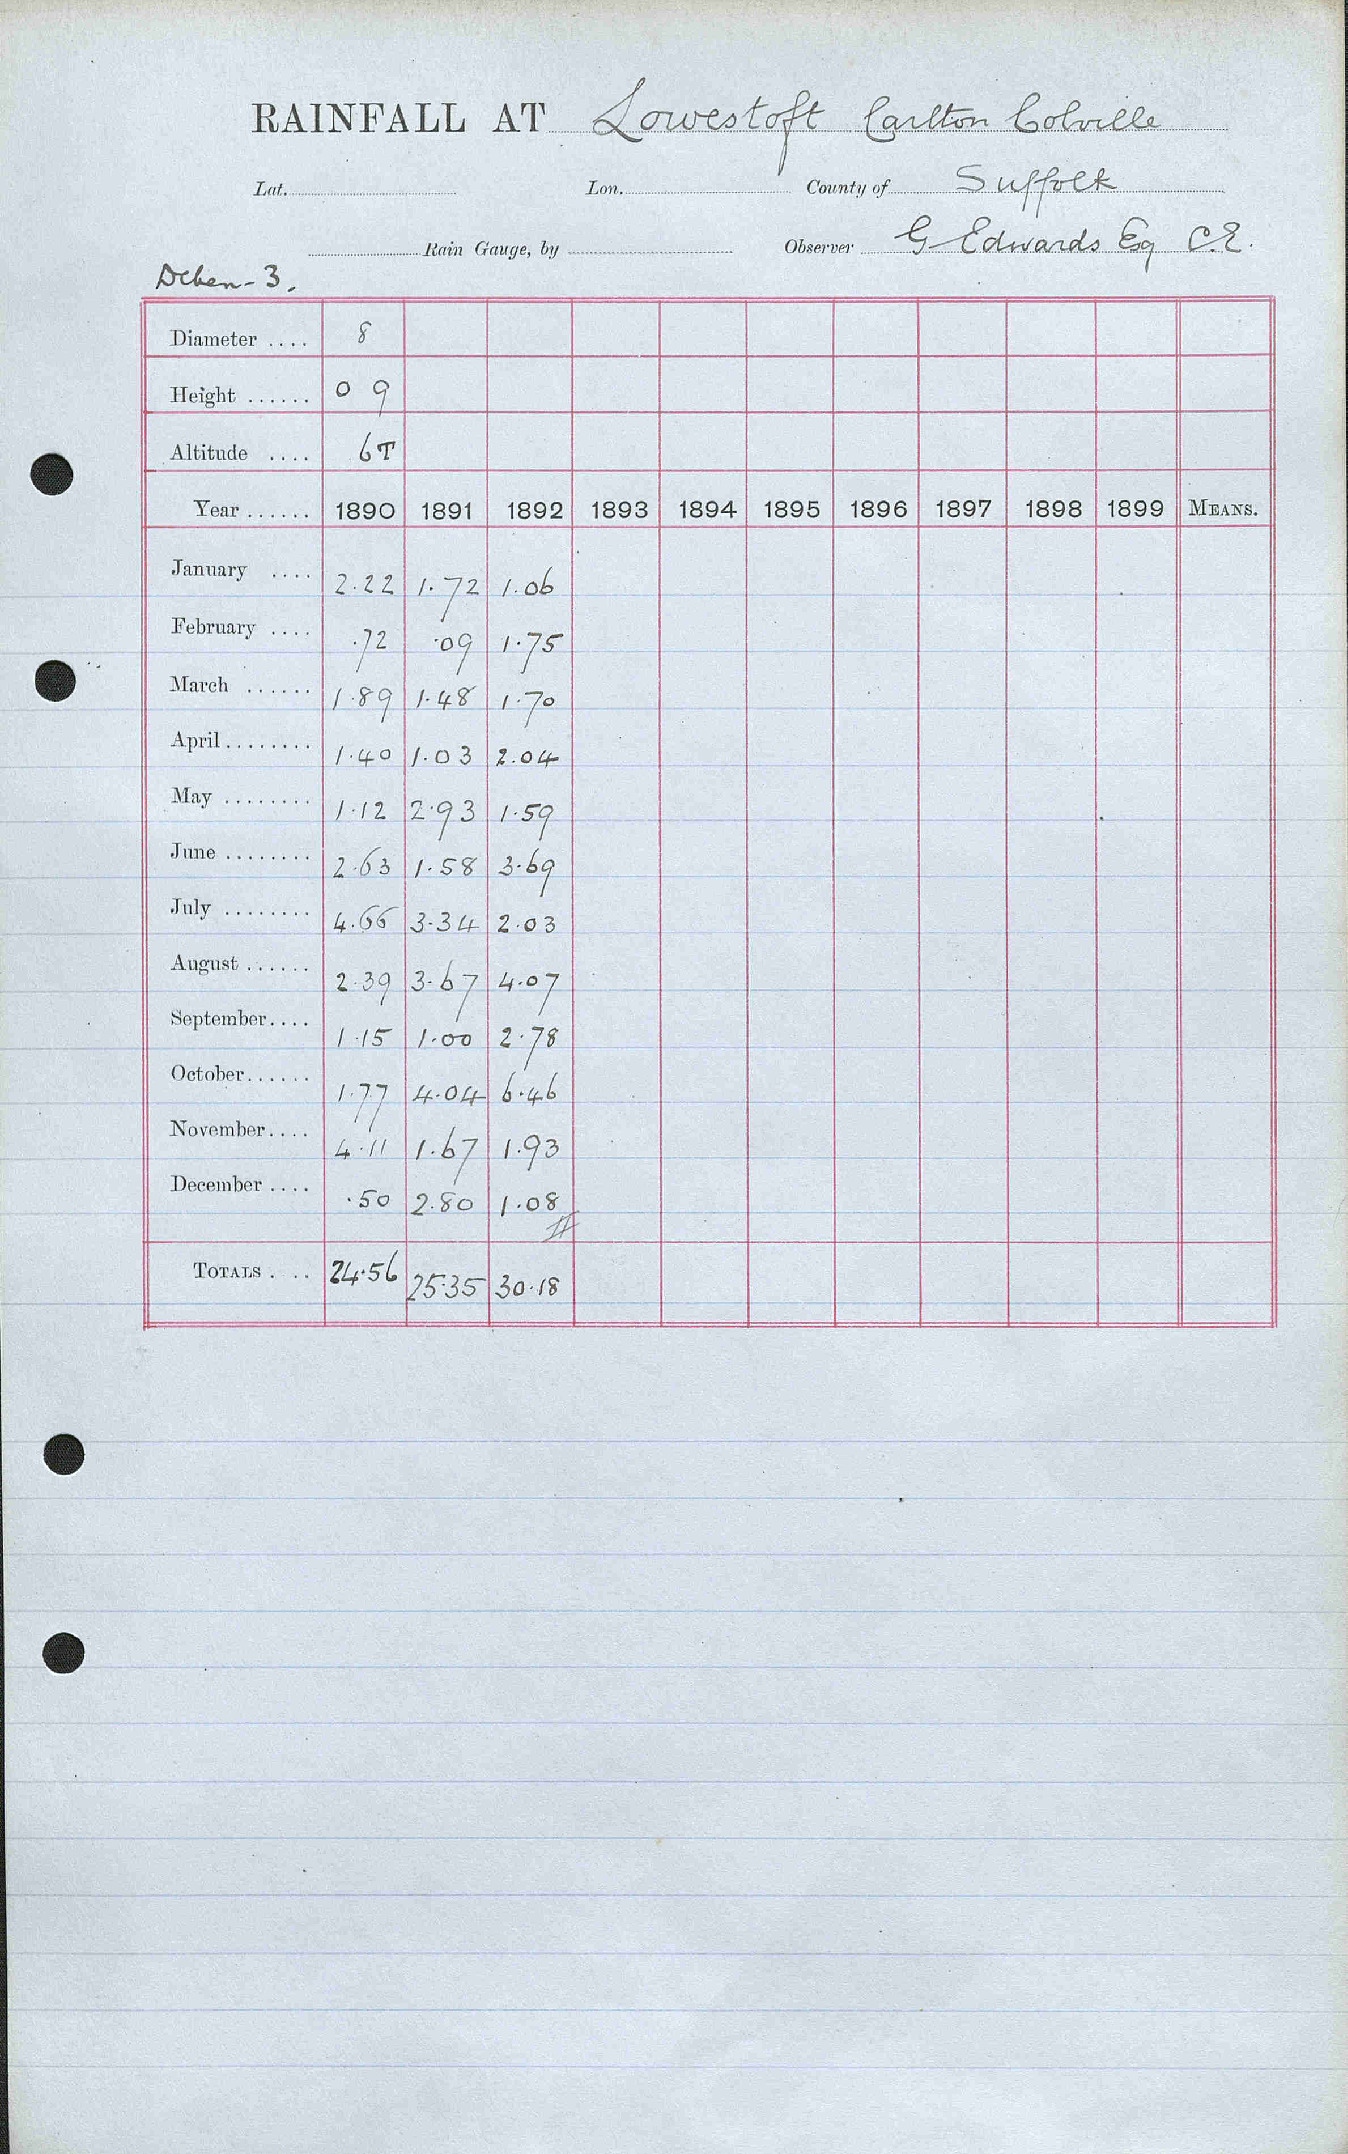 RAINFALL AT Lowestoft Carlton Colville
Lat. Lon. County of Suffolk
Rain Gauge, by Observer G Edwards Esq C.E.
Deben-3.
Diameter .... 8
Height ...... 0 9
Altitude .... 6T
Year ...... 1890 1891 1892 1893 1894 1895 1896 1897 1898 1899 MEANS.
January .... 2.22 1.72 1.06
February .... .72 .09 1.75
March ...... 1.89 1.48 1.70
April ........ 1.40 1.03 2.04
May ........ 1.12 2.93 1.59
June ........ 2.63 1.58 3.69
July ........ 4.66 3.34 2.03
August ...... 2.39 3.67 4.07
September.... 1.15 1.00 2.78
October...... 1.77 4.04 6.46
November.... 4.11 1.67 1.93
December .... .50 2.80 1.08
TOTALS . .. 24.56 25.35 30.18